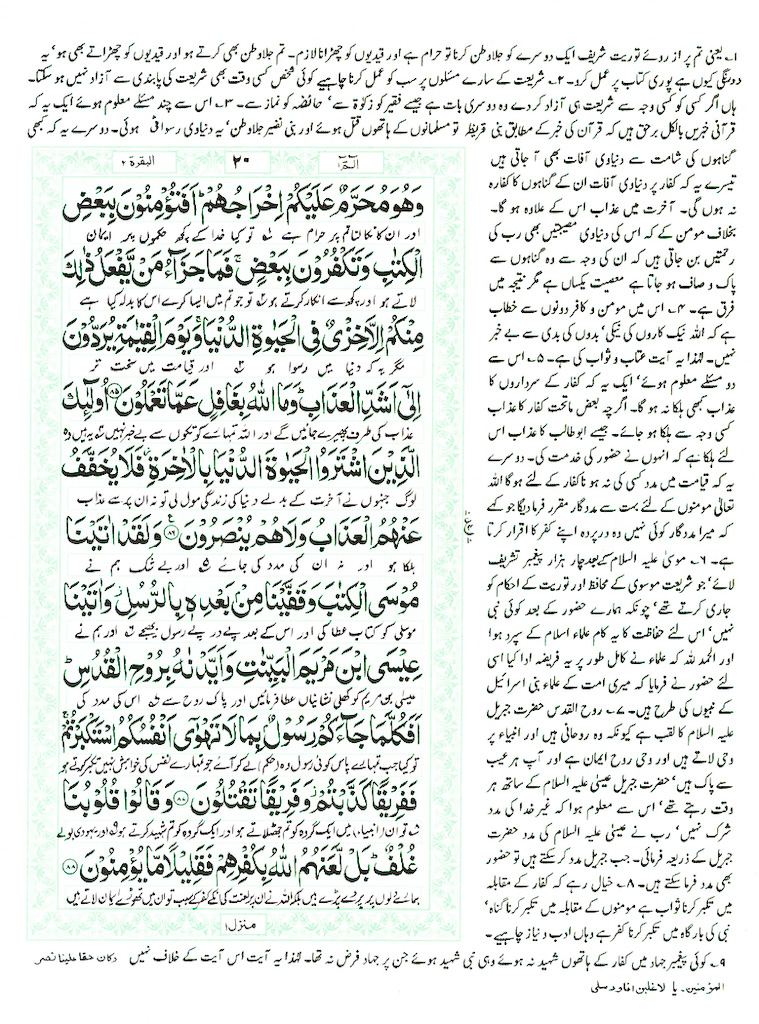 ۱؎ یعنی تم پر از روئے توریت شریف ایک دوسرے کو جلاوطن کرنا تو حرام ہے اور قیدیوں کو چھڑانا لازم۔ تم جلاوطن بھی کرتے ہو اور قیدیوں کو چھڑاتے بھی ہو' یہ
دورنگی کیوں ہے پوری کتاب پر عمل کرو۔ ۲؎ شریعت کے سارے مسئلوں پر سب کو عمل کرنا چاہیے کوئی شخص کسی وقت بھی شریعت کی پابندی سے آزاد نہیں ہو سکتا۔
ہاں اگر کسی کو کسی وجہ سے شریعت ہی آزاد کر دے وہ دوسری بات ہے جیسے فقیر کو زکوٰۃ سے' حائضہ کو نماز سے۔ ۳؎ اس سے چند مسئلے معلوم ہوئے ایک یہ کہ
قرآنی خبریں بالکل برحق ہیں کہ قرآن کی خبر کے مطابق بنی قریظہ تو مسلمانوں کے ہاتھوں قتل ہوئے اور بنی نضیر جلاوطن' یہ دنیاوی رسوائی ہوئی۔ دوسرے یہ کہ کبھی
گناہوں کی شامت سے دنیاوی آفات بھی آ جاتی ہیں
تیسرے یہ کہ کفار پر دنیاوی آفات ان کے گناہوں کا کفارہ
نہ ہوں گی۔ آخرت میں عذاب اس کے علاوہ ہو گا۔
بخلاف مومن کے کہ اس کی دنیاوی مصیبتیں بھی رب کی
رحمتیں بن جاتی ہیں کہ ان کی وجہ سے وہ گناہوں سے
پاک و صاف ہو جاتا ہے معصیت یکساں ہے مگر نتیجہ میں
فرق ہے۔ ۴؎ اس میں مومن و کافر دونوں سے خطاب
ہے کہ اللہ نیک کاروں کی نیکی' بدوں کی بدی سے بے خبر
نہیں۔ لہٰذا یہ آیت عتاب و ثواب کی ہے۔ ۵؎ اس سے
دو مسئلے معلوم ہوئے' ایک یہ کہ کفار کے سرداروں کا
عذاب کبھی ہلکا نہ ہو گا۔ اگرچہ بعض ماتحت کفار کا عذاب
کسی وجہ سے ہلکا ہو جائے۔ جیسے ابوطالب کا عذاب اس
لئے ہلکا ہے کہ انہوں نے حضور کی خدمت کی۔ دوسرے
یہ کہ قیامت میں مدد کسی کی نہ ہونا کفار کے لئے ہو گا اللہ
تعالیٰ مومنوں کے لئے بہت سے مددگار مقرر فرما دیگا جو کہے
کہ میرا مددگار کوئی نہیں وہ درپردہ اپنے کفر کا اقرار کرتا
ہے۔ ۶؎ موسیٰ علیہ السلام کے بعد چار ہزار پیغمبر تشریف
لائے' جو شریعت موسوی کے محافظ اور توریت کے احکام کو
جاری کرتے تھے' چونکہ ہمارے حضور کے بعد کوئی نبی
نہیں' اس لئے حفاظت کا یہ کام علماء اسلام کے سپرد ہوا
اور الحمد للہ کہ علماء نے کامل طور پر یہ فریضہ ادا کیا اسی
لئے حضور نے فرمایا کہ میری امت کے علماء بنی اسرائیل
کے نبیوں کی طرح ہیں۔ ۷؎ روح القدس حضرت جبریل
علیہ السلام کا لقب ہے کیونکہ وہ روحانی ہیں اور انبیاء پر
وحی لاتے ہیں اور وحی روح ایمان ہے اور آپ ہر عیب
سے پاک ہیں' حضرت جبریل عیسیٰ علیہ السلام کے ساتھ ہر
وقت رہتے تھے' اس سے معلوم ہوا کہ غیر خدا کی مدد
شرک نہیں' رب نے عیسیٰ علیہ السلام کی مدد حضرت
جبریل کے ذریعہ فرمائی۔ جب جبریل مدد کر سکتے ہیں تو حضور
بھی مدد فرما سکتے ہیں۔ ۸؎ خیال رہے کہ کفار کے مقابلہ
میں تکبر کرنا ثواب ہے مومنوں کے مقابلہ میں تکبر کرنا گناہ'
نبی کی بارگاہ میں تکبر کرنا کفر ہے وہاں ادب و نیاز چاہیے۔
البقرة ۲
۲۰
الٓمّٓ ۱
وَهُوَ مُحَرَّمٌ عَلَيْكُمْ اِخْرَاجُهُمْ ؕ اَفَتُؤْمِنُوْنَ بِبَعْضِ
اور ان کا نکالنا تم پر حرام ہے تو کیا خدا کے کچھ حکموں پر ایمان
الْكِتٰبِ وَتَكْفُرُوْنَ بِبَعْضٍ ۚ فَمَا جَزَآءُ مَنْ يَّفْعَلُ ذٰلِكَ
لاتے ہو اور کچھ سے انکار کرتے ہو تو جو تم میں ایسا کرے اس کا بدلہ کیا ہے
مِنْكُمْ اِلَّا خِزْيٌ فِى الْحَيٰوةِ الدُّنْيَا ۚ وَيَوْمَ الْقِيٰمَةِ يُرَدُّوْنَ
مگر یہ کہ دنیا میں رسوا ہو اور قیامت میں سخت تر
اِلٰٓى اَشَدِّ الْعَذَابِ ؕ وَمَا اللّٰهُ بِغَافِلٍ عَمَّا تَعْمَلُوْنَ ﴿۸۵﴾ اُولٰٓئِكَ
عذاب کی طرف پھیرے جائیں گے اور اللہ تمہارے کوتکوں سے بے خبر نہیں یہ ہیں وہ
الَّذِيْنَ اشْتَرَوُا الْحَيٰوةَ الدُّنْيَا بِالْاٰخِرَةِ ؗ فَلَا يُخَفَّفُ
لوگ جنہوں نے آخرت کے بدلے دنیا کی زندگی مول لی تو نہ ان پر سے عذاب
عَنْهُمُ الْعَذَابُ وَلَا هُمْ يُنْصَرُوْنَ ﴿۸۶﴾ وَلَقَدْ اٰتَيْنَا
ہلکا ہو اور نہ ان کی مدد کی جائے اور بے شک ہم نے
مُوْسَى الْكِتٰبَ وَقَفَّيْنَا مِنْۢ بَعْدِهٖ بِالرُّسُلِ ؗ وَاٰتَيْنَا
موسٰی کو کتاب عطا کی اور اس کے بعد پے در پے رسول بھیجے اور ہم نے
عِيْسَى ابْنَ مَرْيَمَ الْبَيِّنٰتِ وَاَيَّدْنٰهُ بِرُوْحِ الْقُدُسِ ؕ
عیسٰی بن مریم کو کھلی نشانیاں عطا فرمائیں اور پاک روح سے اس کی مدد کی
اَفَكُلَّمَا جَآءَكُمْ رَسُوْلٌۢ بِمَا لَا تَهْوٰٓى اَنْفُسُكُمُ اسْتَكْبَرْتُمْ ۚ
تو کیا جب تمہارے پاس کوئی رسول وہ (حکم) لے کر آئے جو تمہارے نفس کی خواہش نہیں تکبر کرتے ہو
فَفَرِيْقًا كَذَّبْتُمْ ؗ وَفَرِيْقًا تَقْتُلُوْنَ ﴿۸۷﴾ وَقَالُوْا قُلُوْبُنَا
تو ان (انبیاء) میں ایک گروہ کو تم جھٹلاتے ہو اور ایک گروہ کو تم شہید کرتے ہو اور یہودی بولے
غُلْفٌ ؕ بَلْ لَّعَنَهُمُ اللّٰهُ بِكُفْرِهِمْ فَقَلِيْلًا مَّا يُؤْمِنُوْنَ ﴿۸۸﴾
ہمارے دلوں پر پردے پڑے ہیں بلکہ اللہ نے ان پر لعنت کی انکے کفر کے سبب تو ان میں تھوڑے ایمان لاتے ہیں
منزل ۱
۹؎ کوئی پیغمبر جہاد میں کفار کے ہاتھوں شہید نہ ہوئے وہی نبی شہید ہوئے جن پر جہاد فرض نہ تھا۔ لہٰذا یہ آیت اس آیت کے خلاف نہیں وکان حقا علینا نصر
المؤمنین۔ یا لاغلبن انا ورسلی